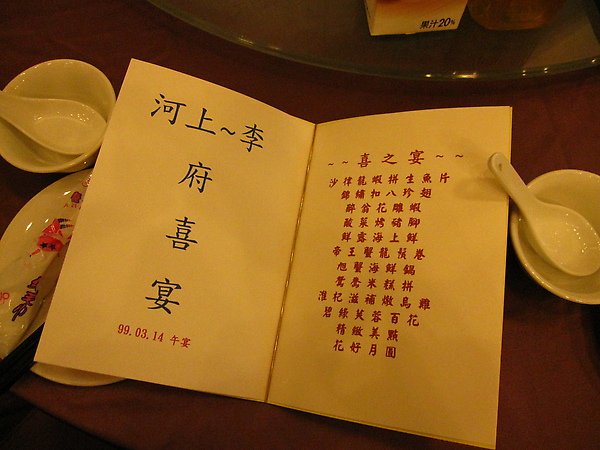 果汁20%
河上~李
府
喜
宴
99.03.14 午宴
~ ~ 喜之宴 ~ ~
沙律龍蝦拼生魚片
錦繡扣八珍翅
醉翁花雕蝦
酸菜烤豬腳
鮮露海上鮮
帝王蟹龍鬚卷
旭蟹海鮮鍋
鴛鴦米糕拼
淮杞滋補燉烏雞
碧綠芙蓉百花
精緻美點
花好月圓